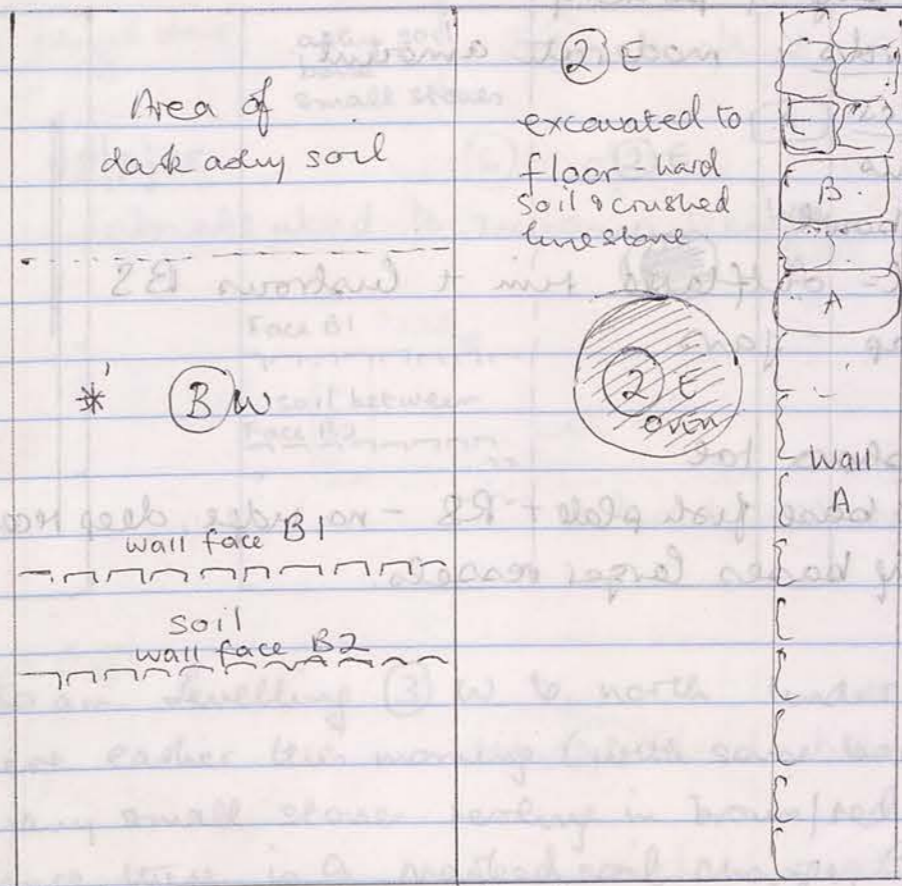 Area of
dark ashy soil
② E
excavated to
floor - hard
soil & crushed
limestone
E
B
A
* Ⓑ W
② E
oven
Wall
A
wall face B1
soil
wall face B2